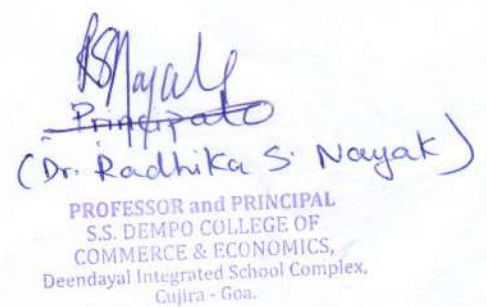 RSNayak
Principal
(Dr. Radhika S. Nayak)
PROFESSOR and PRINCIPAL
S.S. DEMPO COLLEGE OF
COMMERCE & ECONOMICS,
Deendayal Integrated School Complex,
Cujira - Goa.